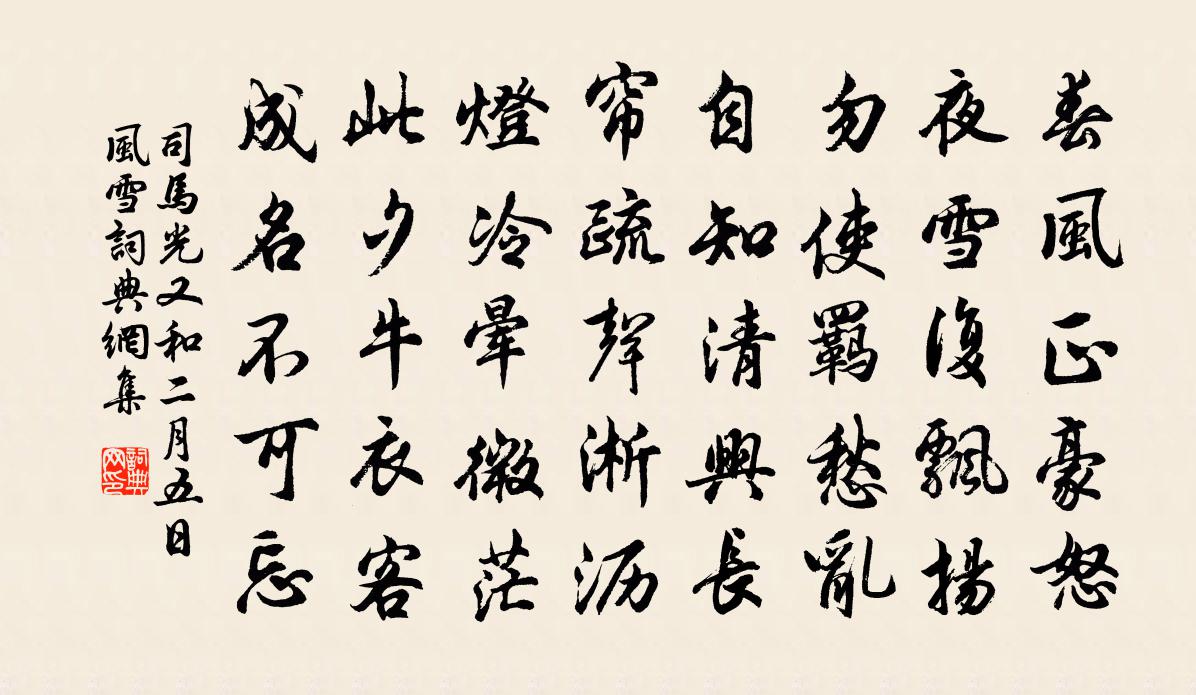 春風正豪怒
夜雪復飄揚
勿使羈愁亂
自知清興長
帘疏聲淅沥
燈冷暈微茫
此夕牛衣客
成名不可忘
司馬光又和二月五日
風雪詞典網集
詞典网印